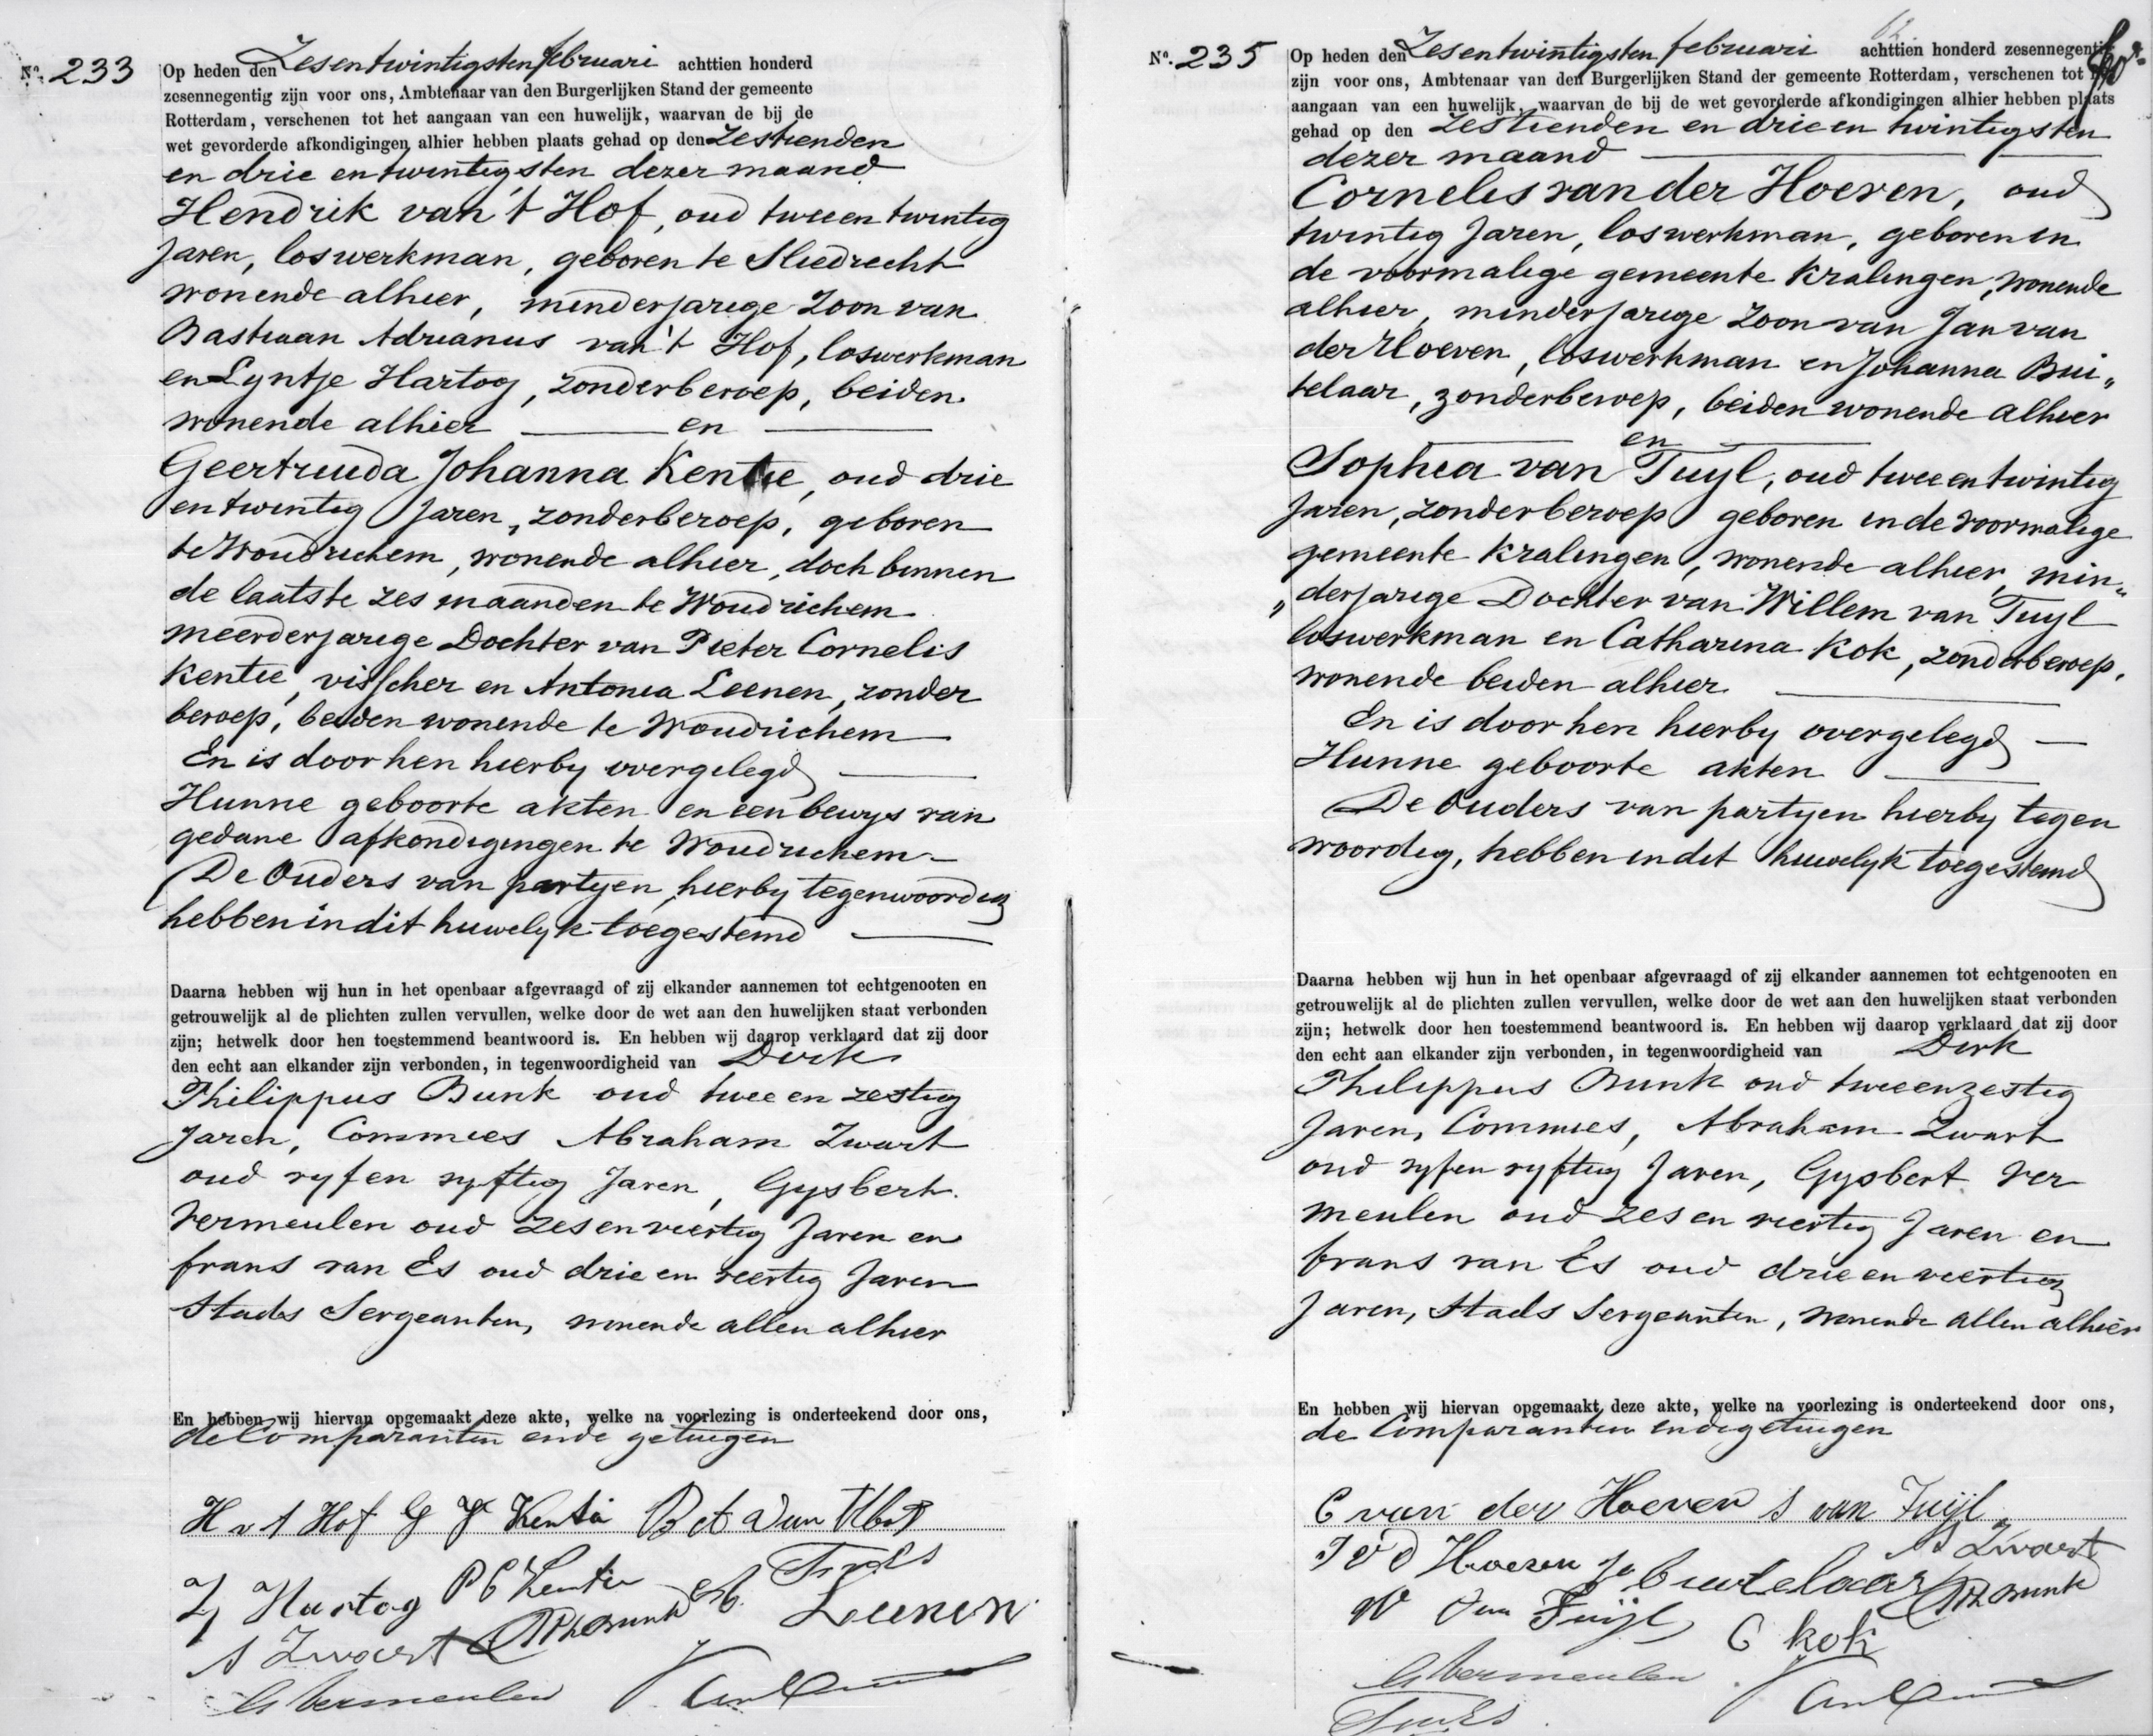 No. 233
Op heden den Zesentwintigsten februari achttien honderd
zesennegentig zijn voor ons, Ambtenaar van den Burgerlijken Stand der gemeente
Rotterdam, verschenen tot het aangaan van een huwelijk, waarvan de bij de
wet gevorderde afkondigingen alhier hebben plaats gehad op den Zestienden
en drie en twintigsten dezer maand
Hendrik van 't Hof, oud twee en twintig
Jaren, loswerkman, geboren te Sliedrecht
wonende alhier, minderjarige Zoon van
Bastiaan Adrianus van 't Hof, loswerkman
en Lyntje Hartog, zonder beroep, beiden
wonende alhier en
Geertruida Johanna Kentie, oud drie
en twintig Jaren, zonder beroep, geboren
te Woudrichem, wonende alhier, doch binnen
de laatste zes maanden te Woudrichem
meerderjarige Dochter van Pieter Cornelis
Kentie, visscher en Antonia Leenen, zonder
beroep, beiden wonende te Woudrichem
En is door hen hierby overgelegd
Hunne geboorte akten en een bewys van
gedane afkondigingen te Woudrichem
De Ouders van partyen, hierby tegenwoordig
hebben in dit huwelyk toegestemd
Daarna hebben wij hun in het openbaar afgevraagd of zij elkander aannemen tot echtgenooten en
getrouwelijk al de plichten zullen vervullen, welke door de wet aan den huwelijken staat verbonden
zijn; hetwelk door hen toestemmend beantwoord is. En hebben wij daarop verklaard dat zij door
den echt aan elkander zijn verbonden, in tegenwoordigheid van Dirk
Philippus Bunk oud twee en zestig
Jaren, Commies Abraham Zwart
oud vyf en vyftig Jaren, Gysbert
Vermeulen oud zes en veertig Jaren en
frans van Es oud drie en veertig Jaren
Stads Sergeanten, wonende allen alhier
En hebben wij hiervan opgemaakt deze akte, welke na voorlezing is onderteekend door ons,
de Comparanten en de getuigen
H v t Hof G J Kentie B A van t Hof
L Hartog P C Kentie A Leenen
F v Es
A Zwart D Ph Bunk
G Vermeulen
No. 235
Op heden den Zesentwintigsten februari achttien honderd zesennegentig
zijn voor ons, Ambtenaar van den Burgerlijken Stand der gemeente Rotterdam, verschenen tot
aangaan van een huwelijk, waarvan de bij de wet gevorderde afkondigingen alhier hebben plaats
gehad op den Zestienden en drie en twintigsten
dezer maand
Cornelis van der Hoeven, oud
twintig Jaren, loswerkman, geboren in
de voormalige gemeente Kralingen, wonende
alhier, minderjarige Zoon van Jan van
der Hoeven, loswerkman en Johanna Bui„
telaar, zonder beroep, beiden wonende alhier
en
Sophia van Tuyl, oud twee en twintig
Jaren, zonder beroep geboren in de voormalige
gemeente Kralingen, wonende alhier, min„
„derjarige Dochter van Willem van Tuyl
loswerkman en Catharina Kok, zonder beroep,
wonende beiden alhier
En is door hen hierby overgelegd
Hunne geboorte akten
De Ouders van partyen hierby tegen
woordig, hebben in dit huwelyk toegestemd
Daarna hebben wij hun in het openbaar afgevraagd of zij elkander aannemen tot echtgenooten en
getrouwelijk al de plichten zullen vervullen, welke door de wet aan den huwelijken staat verbonden
zijn; hetwelk door hen toestemmend beantwoord is. En hebben wij daarop verklaard dat zij door
den echt aan elkander zijn verbonden, in tegenwoordigheid van Dirk
Philippus Bunk oud twee en zestig
Jaren, Commies, Abraham Zwart
oud vyf en vyftig Jaren, Gysbert Ver
meulen oud zes en veertig Jaren en
frans van Es oud drie en veertig
Jaren, Stads Sergeanten, wonende allen alhier
En hebben wij hiervan opgemaakt deze akte, welke na voorlezing is onderteekend door ons,
de Comparanten en de getuigen
C van der Hoeven S van Tuijl
J v d Hoeven Jo Buitelaar A Zwart
W van Tuijl D Ph Bunk
C kok
G Vermeulen
F v Es